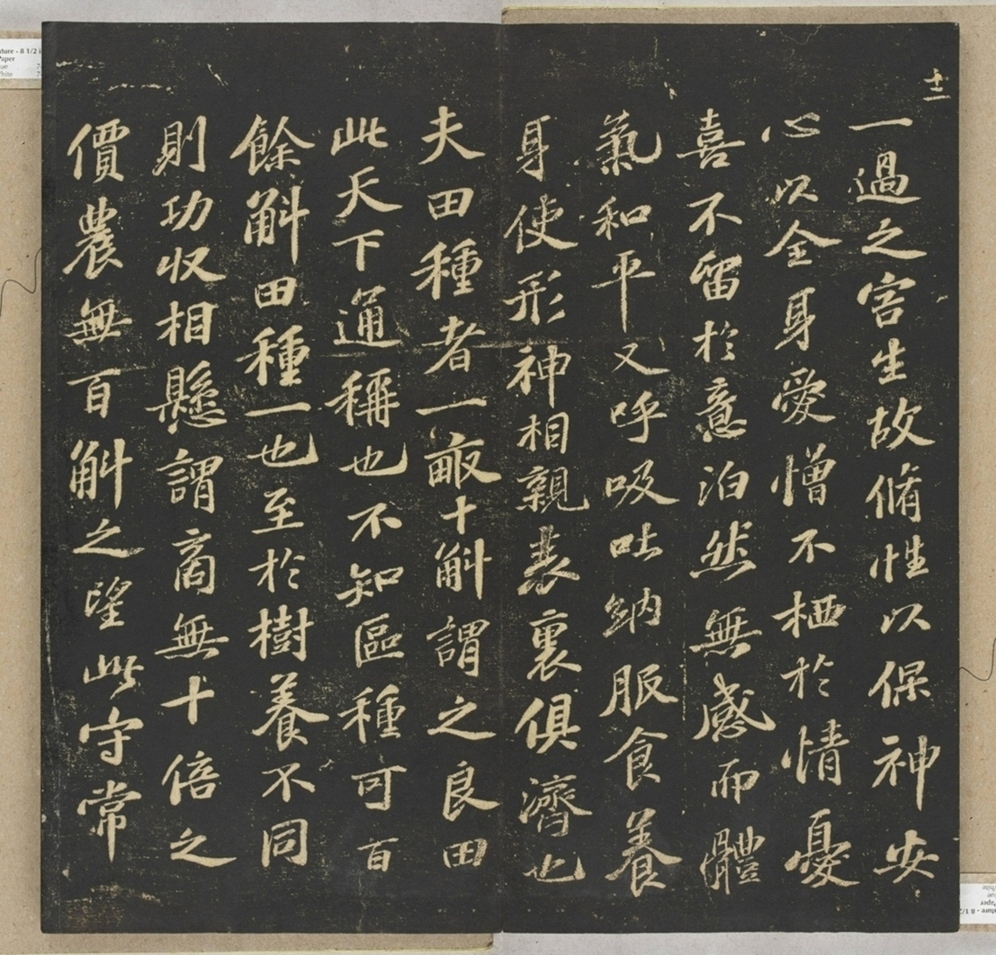 十二
一過之害生故脩性以保神安
心以全身愛憎不栖於情憂
喜不留於意泊然無感而體
氣和平又呼吸吐納服食養
身使形神相親表裏俱濟也
夫田種者一畝十斛謂之良田
此天下通稱也不知區種可百
餘斛田種一也至於樹養不同
則功收相懸謂商無十倍之
價農無百斛之望此守常